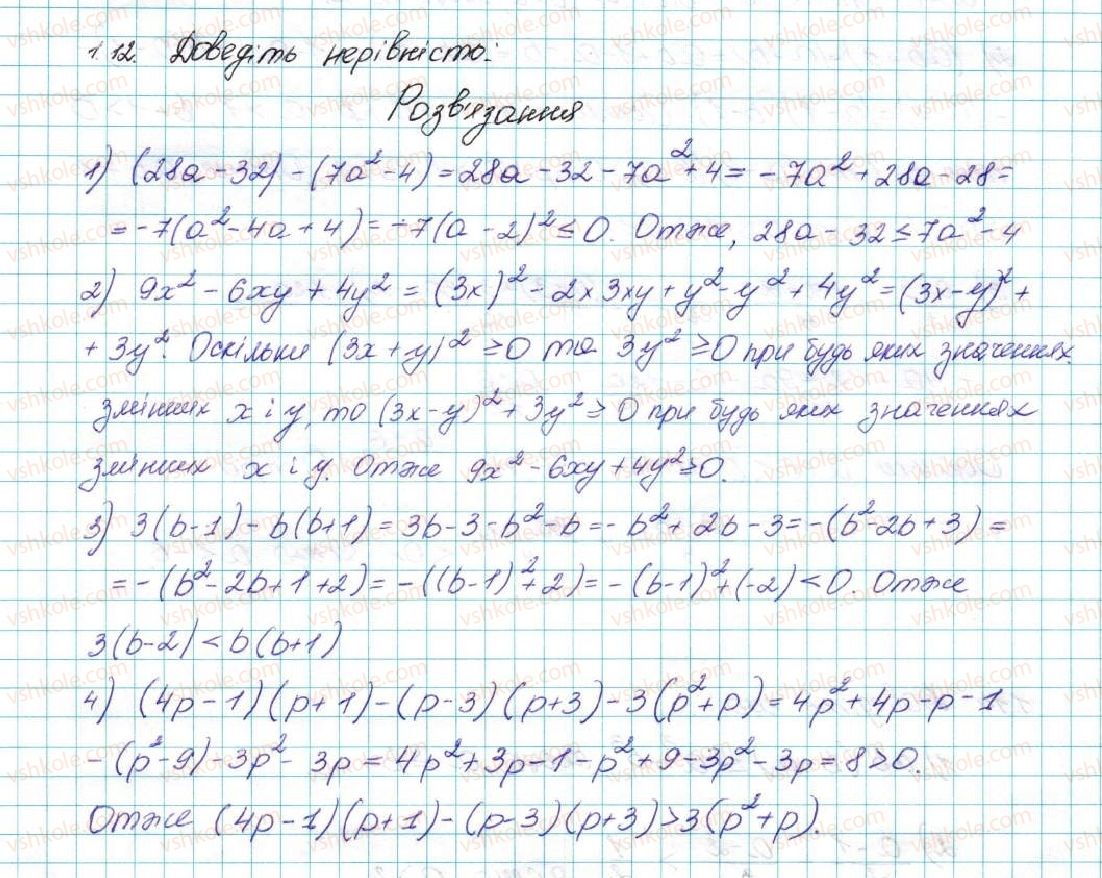 1.12. Доведіть нерівність:
Розв'язання
1) (28a - 32) - (7a² - 4) = 28a - 32 - 7a² + 4 = -7a² + 28a - 28 =
= -7(a² - 4a + 4) = -7(a - 2)² ≤ 0. Отже, 28a - 32 ≤ 7a² - 4
2) 9x² - 6xy + 4y² = (3x)² - 2×3xy + y² - y² + 4y² = (3x - y)² +
+ 3y². Оскільки (3x + y)² ≥ 0 та 3y² ≥ 0 при будь яких значеннях
змінних x і y, то (3x - y)² + 3y² ≥ 0 при будь яких значеннях
змінних x і y. Отже 9x² - 6xy + 4y² ≥ 0.
3) 3(b - 1) - b(b + 1) = 3b - 3 - b² - b = -b² + 2b - 3 = -(b² - 2b + 3) =
= -(b² - 2b + 1 + 2) = -((b - 1)² + 2) = -(b - 1)² + (-2) < 0. Отже
3(b - 2) < b(b + 1)
4) (4p - 1)(p + 1) - (p - 3)(p + 3) - 3(p² + p) = 4p² + 4p - p - 1
- (p² - 9) - 3p² - 3p = 4p² + 3p - 1 - p² + 9 - 3p² - 3p = 8 > 0.
Отже (4p - 1)(p + 1) - (p - 3)(p + 3) > 3(p² + p).